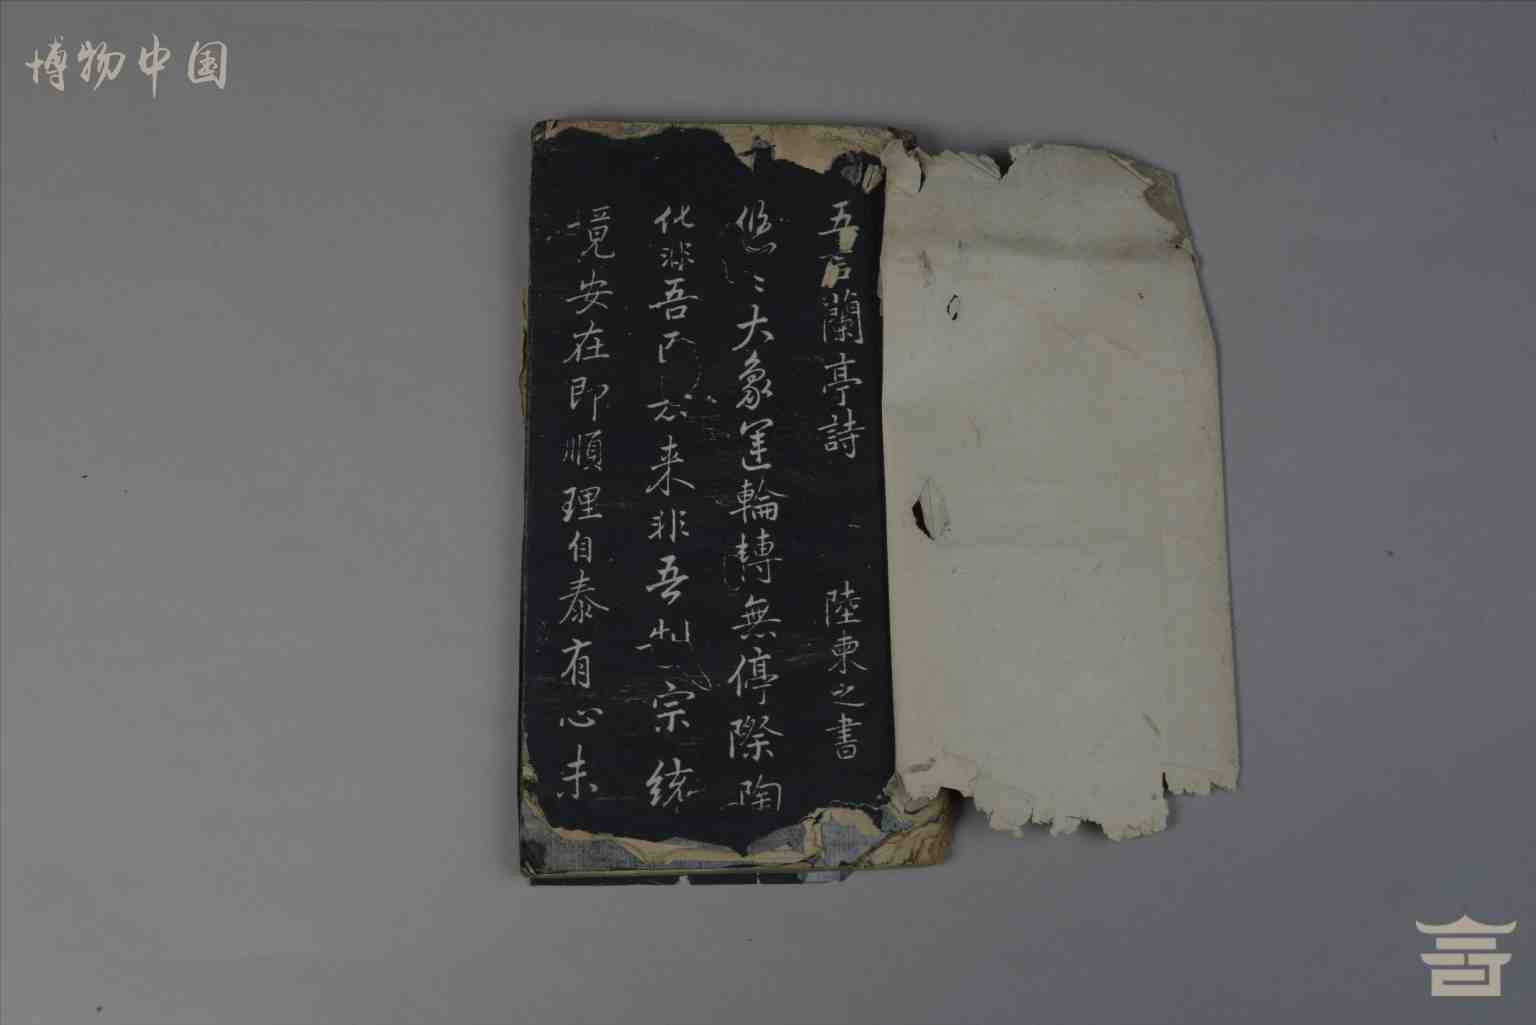 博物中国
五言蘭亭詩 陸柬之書
悠〻大象運輪轉無停際陶
化非吾匠去来非吾制宗統
竟安在即順理自泰有心未